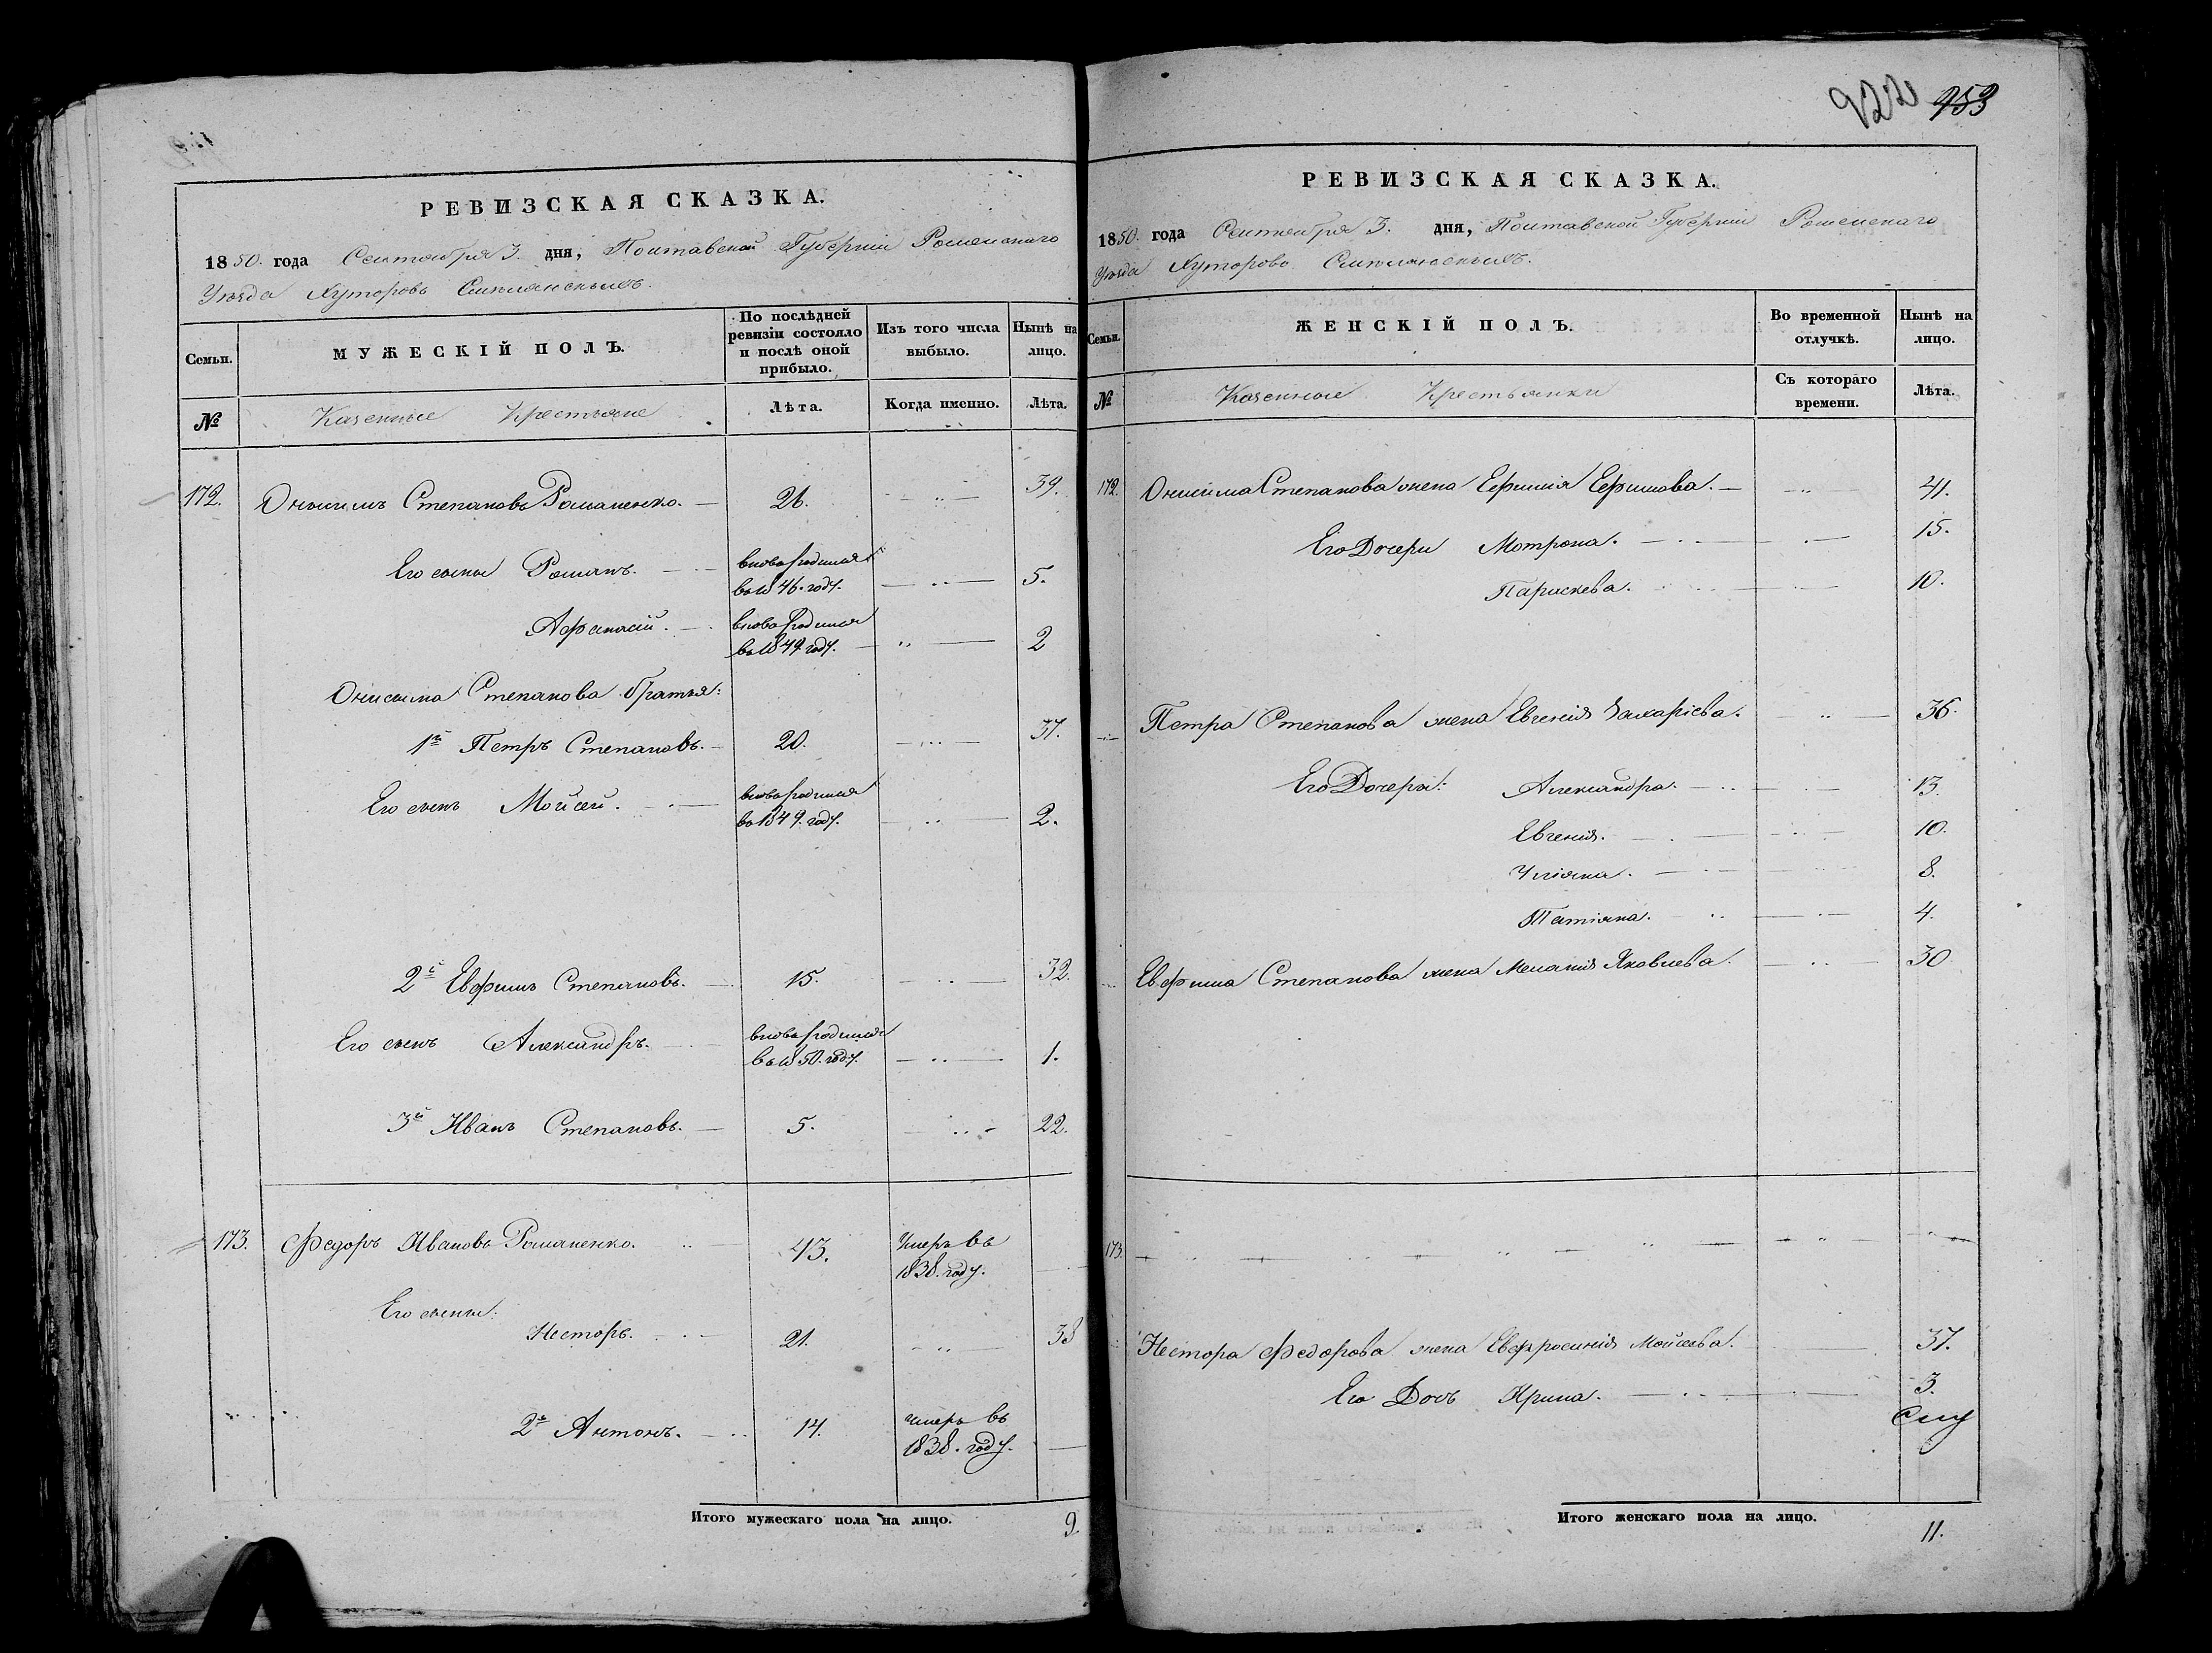 РЕВИЗСКАЯ СКАЗКА.
1850. года Сентября 3. дня, Полтавской Губерніи Роменскаго
Уѣзда Хуторовъ
Семьи.
МУЖЕСКІЙ ПОЛЪ.
По послѣдней ревизіи состояло и послѣ оной прибыло.
Изъ того числа выбыло.
Нынѣ на лицо.
№
Казенные Крестьяне
Лѣта.
Когда именно.
Лѣта.
172. Онисимъ Степановъ Романенко. 26. 39.
Его сыны Романъ. вновь родился въ 1846. году. 5.
Афанасій. вновь родился въ 1849. году. 2
Онисима Степанова братья:
1й Петръ Степановъ. 20. 37.
Его сынъ Мойсей. вновь родился въ 1849. году. 2.
2й Евфимъ Степановъ. 15. 32.
Его сынъ Александръ. вновь родился въ 1850. году. 1.
3й Иванъ Степановъ. 5. 22.
173. Федоръ Ивановъ Романенко. 43. Умеръ въ 1838. году.
Его сыны:
Несторъ. 21. 38
2й Антонъ. 14. умеръ въ 1838. году.
Итого мужескаго пола на лицо. 9.
922 953
РЕВИЗСКАЯ СКАЗКА.
1850. года Сентября 3. дня, Полтавской Губерніи Роменскаго
Уѣзда Хуторовъ
Семьи.
ЖЕНСКІЙ ПОЛЪ.
Во временной отлучкѣ.
Нынѣ на лицо.
№
Казенные Крестьянки
Съ котораго времени.
Лѣта.
172. Онисима Степанова жена Ефимія Ефимова. 41.
Его Дочери Мотрона. 15.
Параскева. 10.
Петра Степанова жена Евгенія Захаріева. 36.
Его Дочери: Александра. 13.
Евгенія. 10.
Уліяна. 8.
Татіяна. 4.
Евфима Степанова жена Меланія Яковлева. 30
173.
Нестора Федорова жена Евфросинія Мойсеева. 37.
Его Дочь Ирина. 3.
Итого женскаго пола на лицо. 11.